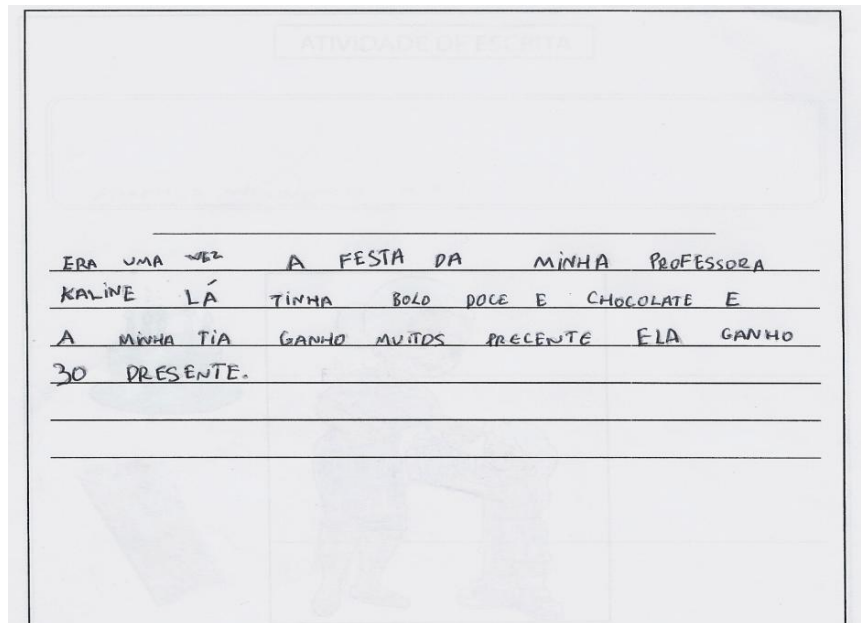 ATIVIDADE DE ESCRITA
ERA UMA VEZ A FESTA DA MINHA PROFESSORA
KALINE LÁ TINHA BOLO DOCE E CHOCOLATE E
A MINHA TIA GANHO MUITOS PRECENTE ELA GANHO
30 PRESENTE.